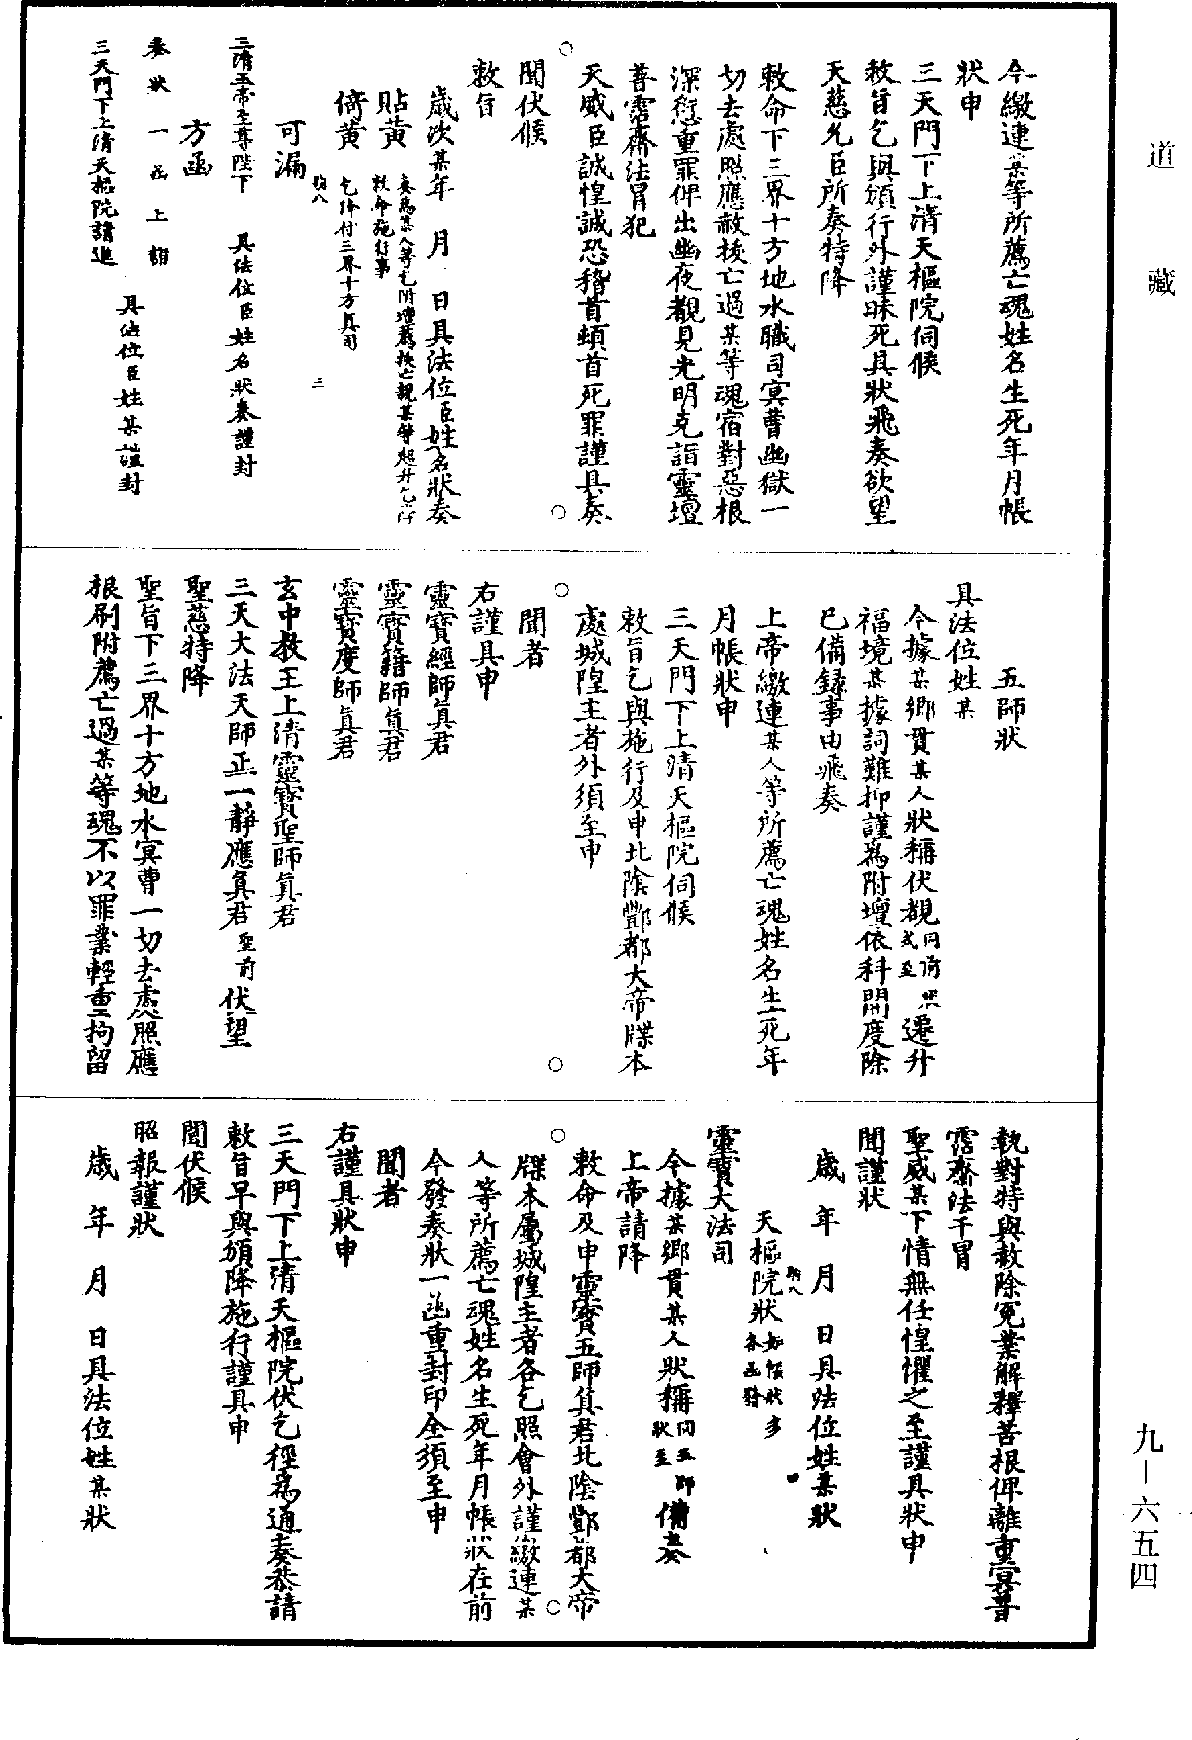 道藏
今繳連某等所薦亡魂姓名生死年月帳
狀申
三天門下上清天樞院伺候
敕旨乞與頒行外謹昧死具狀飛奏欲望
天慈允臣所奏特降
敕命下三界十方地水職司冥曹幽獄一
切去處照應赦拔亡過某等魂宿對惡根
深愆重罪俾出幽夜覩見光明克詣靈壇
普霑齋法冒犯
天威臣誠惶誠恐稽首頓首死罪謹具奏
聞伏候
敕旨
歲次某年 月 日具法位臣姓名狀奏
貼黃 奏為某人等乞附壇薦拔亡親某等超升乞降
敕命施行事
倚黃 乞降付三界十方真司
可漏
三清玉帝至尊陛下 具法位臣姓名狀奏謹封
方函
奏狀一函上詣
三天門下上清天樞院請進
具法位臣姓某謹封
五師狀
具法位姓某
今據某鄉貫某人狀稱伏覩同前式至遷升
福境某據詞難抑謹為附壇依科開度除
已備錄事由飛奏
上帝繳連某人等所薦亡魂姓名生死年
月帳狀申
三天門下上清天樞院伺候
敕旨乞與施行及申北陰酆都大帝牒本
處城隍主者外須至申
聞者
右謹具申
靈寶經師真君
靈寶籍師真君
靈寶度師真君
玄中教主上清靈寶聖師真君
三天大法天師正一靜應真君聖前伏望
聖慈特降
聖旨下三界十方地水冥曹一切去處照應
根刷附薦亡過某等魂不以罪業輕重拘留
執對特與赦除冤業解釋苦根俾離重冥普
霑齋法干冒
聖威某下情無任惶懼之至謹具狀申
聞謹狀
歲 年 月 日具法位姓某狀
天樞院狀如帳狀多各函發
靈寶大法司
今據某鄉貫某人狀稱同五師狀至備奏
上帝請降
敕命及申靈寶五師真君北陰酆都大帝
牒本屬城隍主者各乞照會外謹繳連某
人等所薦亡魂姓名生死年月帳狀在前
今發奏狀一函重封印全須至申
聞者
右謹具狀申
三天門下上清天樞院伏乞徑為通奏恭請
敕旨早與頒降施行謹具申
聞伏候
昭報謹狀
歲 年 月 日具法位姓某狀
九—六五四